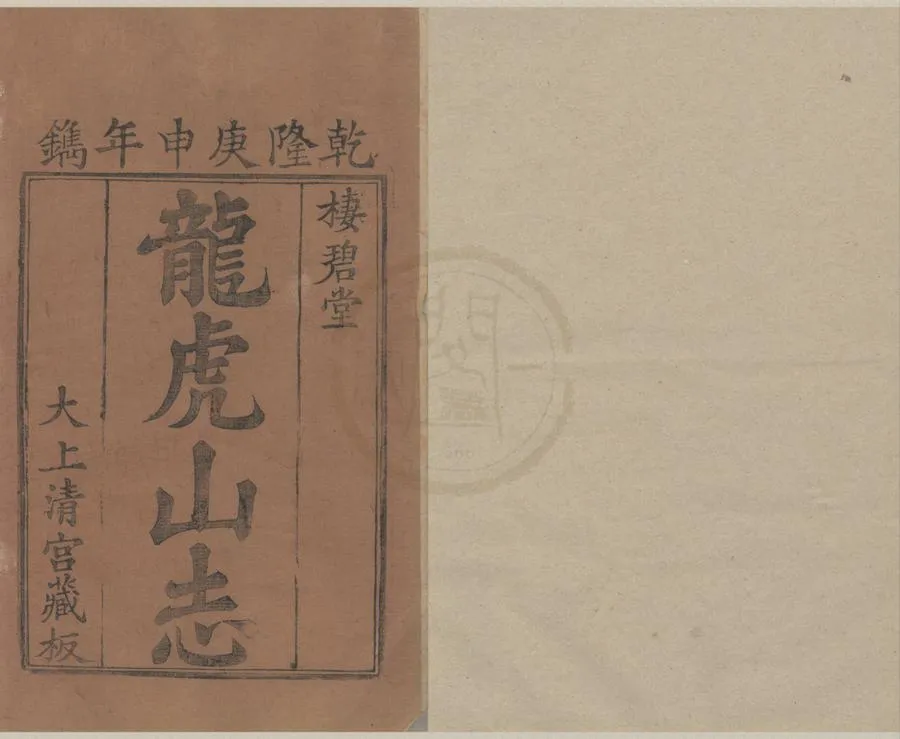 乾隆庚申年鐫
棲碧堂
龍虎山志
大上清宮藏板